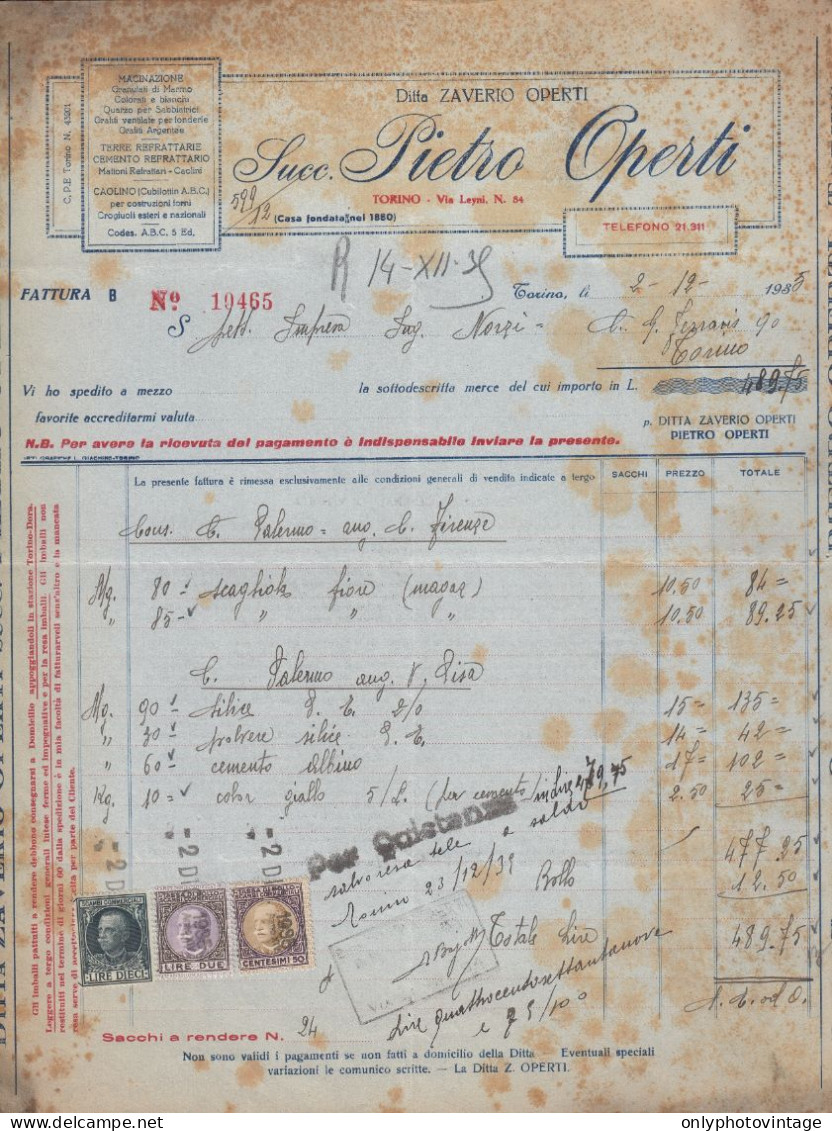 C. P. E. Torino N. 43201
MACINAZIONE
Granulati di Marmo
Colorati e bianchi
Quarzo per Sabbiatrici
Grafiti ventilate per fonderie
Grafiti Argentee
TERRE REFRATTARIE
CEMENTO REFRATTARIO
Mattoni Refrattari - Caolini
CAOLINO (Cubilottin A.B.C.)
per costruzioni forni
Crogiuoli esteri e nazionali
Codes. A.B.C. 5 Ed.
Ditta ZAVERIO OPERTI
Succ. Pietro Operti
TORINO - Via Leynì. N. 84
599/12
(Casa fondata nel 1880)
TELEFONO 21.311
R 14-XII-35
FATTURA B Nº 19465
Torino, lì 2-12- 1935
S Sett. Impresa Ing. Norzi - C. G. Ferraris 90
Torino
Vi ho spedito a mezzo la sottodescritta merce del cui importo in L. 489.75
favorite accreditarmi valuta
p. DITTA ZAVERIO OPERTI
PIETRO OPERTI
N.B. Per avere la ricevuta del pagamento è indispensabile inviare la presente.
ARTI GRAFICHE L. GIACHINO-TORINO
La presente fattura è rimessa esclusivamente alle condizioni generali di vendita indicate a tergo
SACCHI PREZZO TOTALE
Cons. C. Palermo = ang. C. Firenze
Mg. 80 - scagliola fiore (magaz) 10.50 84 =
" 85 - " " " 10.50 89.25
C. Palermo ang. V. Pisa
Mg. 90 silice P. E. 2/0 15 = 135 =
" 30 polvere silice P. E. 14 = 42 =
" 60 cemento Albino 17 = 102 =
Kg. 10 = color giallo 5/L. (per cemento) 2.50 25 =
in lire 479,75
Per Quietanza
a saldo
477.25
Torino 23/12/35
Bollo 12.50
Totale Lire 489.75
Lire quattrocentosettantanove
e 75/100
- 2 D
- 2 DI
- 2 D
SCAMBI COMMERCIALI
LIRE DIECI
LIRE DUE
CENTESIMI 50
1935
Sacchi a rendere N. 24
Gli imballi pattuiti a rendere debbono consegnarsi a Domicilio appoggiandoli in stazione Torino-Dora.
Leggere a tergo condizioni generali intese ferme ed impegnative e per la resa imballi. Gli imballi non
restituiti nel termine di giorni 60 dalla spedizione è in mia facoltà di fatturarveli senz'altro e la mancata
resa serve di accettazione tacita per parte del Cliente.
Non sono validi i pagamenti se non fatti a domicilio della Ditta Eventuali speciali
variazioni le comunico scritte. — La Ditta Z. OPERTI.
DITTA ZAVERIO OPERTI
www.delcampe.net
onlyphotovintage